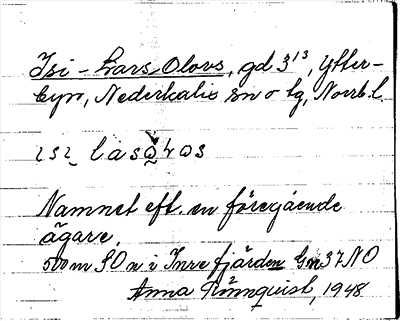 Isi-Lars-Olovs, gd 3¹³, Ytter-
byn, Nederkalix sn o tg, Norrb.l.
Namnet eft. en föregående
ägare.
500 m SO n i Inre fjärden Gm 37 NO
Anna Rönnquist, 1948